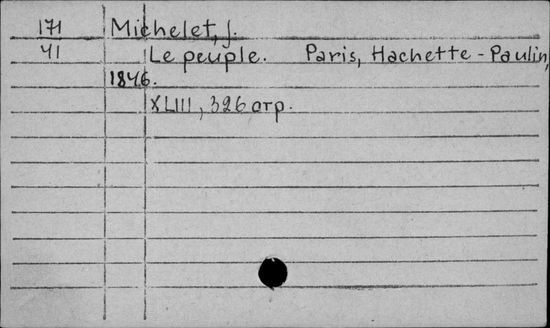 171 Michelet, J.
41 Le peuple. Paris, Hachette-Paulin,
1846.
XLIII, 326 стр.